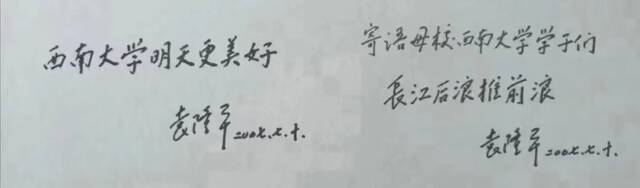 西南大学明天更美好
袁隆平 2007.7.10.
寄语母校西南大学学子们
長江后浪推前浪
袁隆平 2007.7.10.